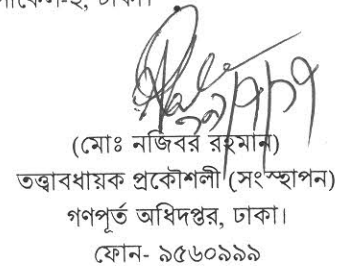 সার্কেল-২, ঢাকা।
(মোঃ নজিবর রহমান)
তত্ত্বাবধায়ক প্রকৌশলী (সংস্থাপন)
গণপূর্ত অধিদপ্তর, ঢাকা।
ফোন- ৯৫৬০৯৯৯